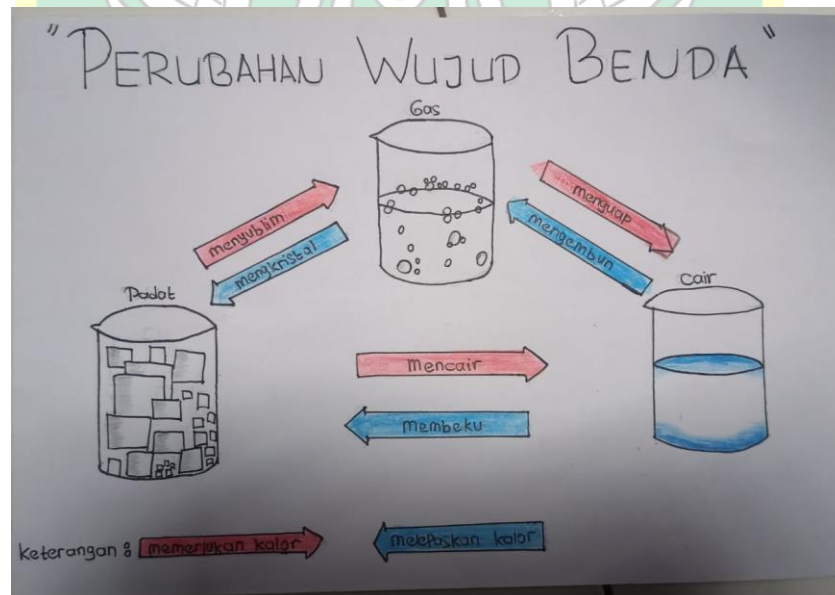 "PERUBAHAN WUJUD BENDA"
Gas
menyublim
mengkristal
menguap
mengembun
Padat
Cair
Mencair
Membeku
keterangan : memerlukan kalor
melepaskan kalor